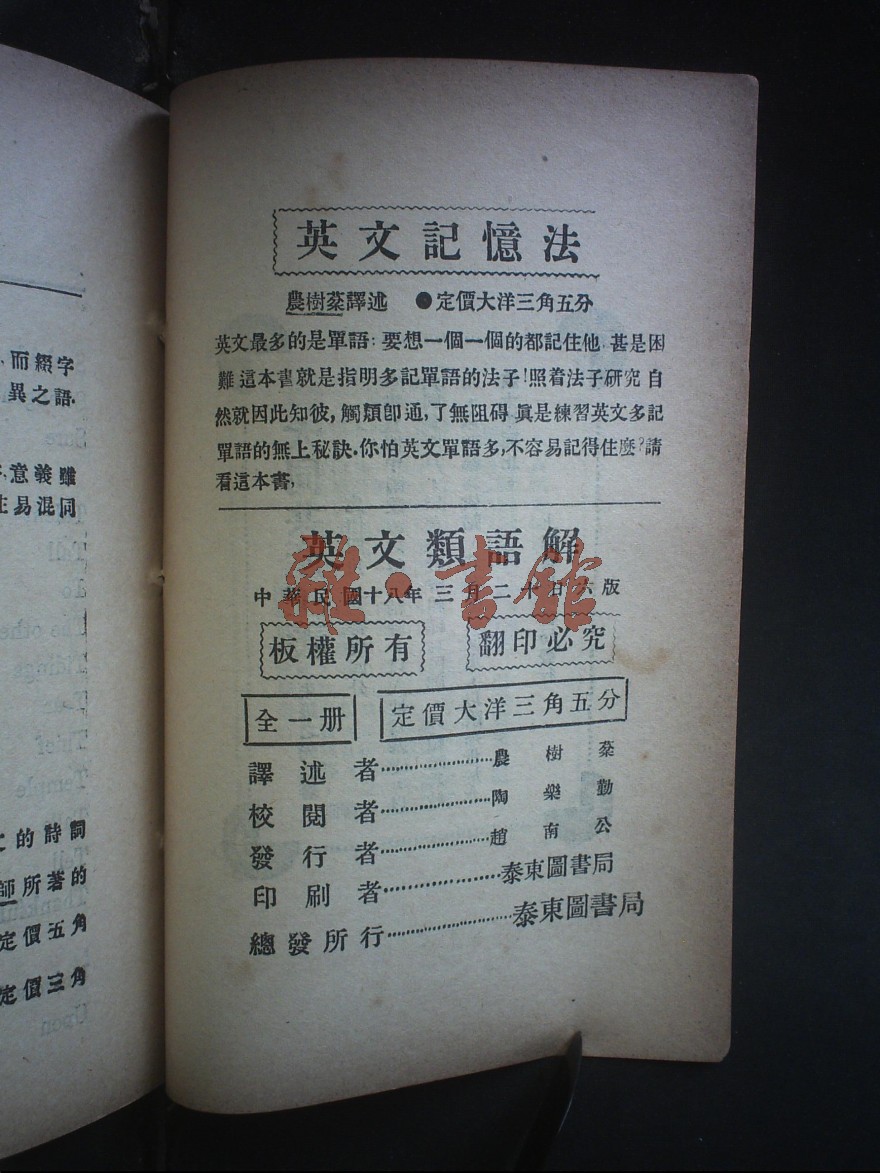 英文記憶法
農樹棻譯述 ●定價大洋三角五分
英文最多的是單語:要想一個一個的都記住他,甚是困
難這本書就是指明多記單語的法子!照着法子研究自
然就因此知彼,觸類卽通,了無阻碍眞是練習英文多記
單語的無上秘訣.你怕英文單語多,不容易記得住麽?請
看這本書,
英文類語解
中華民國十八年三月二十日六版
板權所有 翻印必究
全一册 定價大洋三角五分
譯述者………………農樹棻
校閱者………………陶樂勤
發行者………………趙南公
印刷者………………泰東圖書局
總發所行………………泰東圖書局
雜·書館
而綴字
異之語.
意義雖
易混同
的詩詞
師所著的
定價五角
定價三角